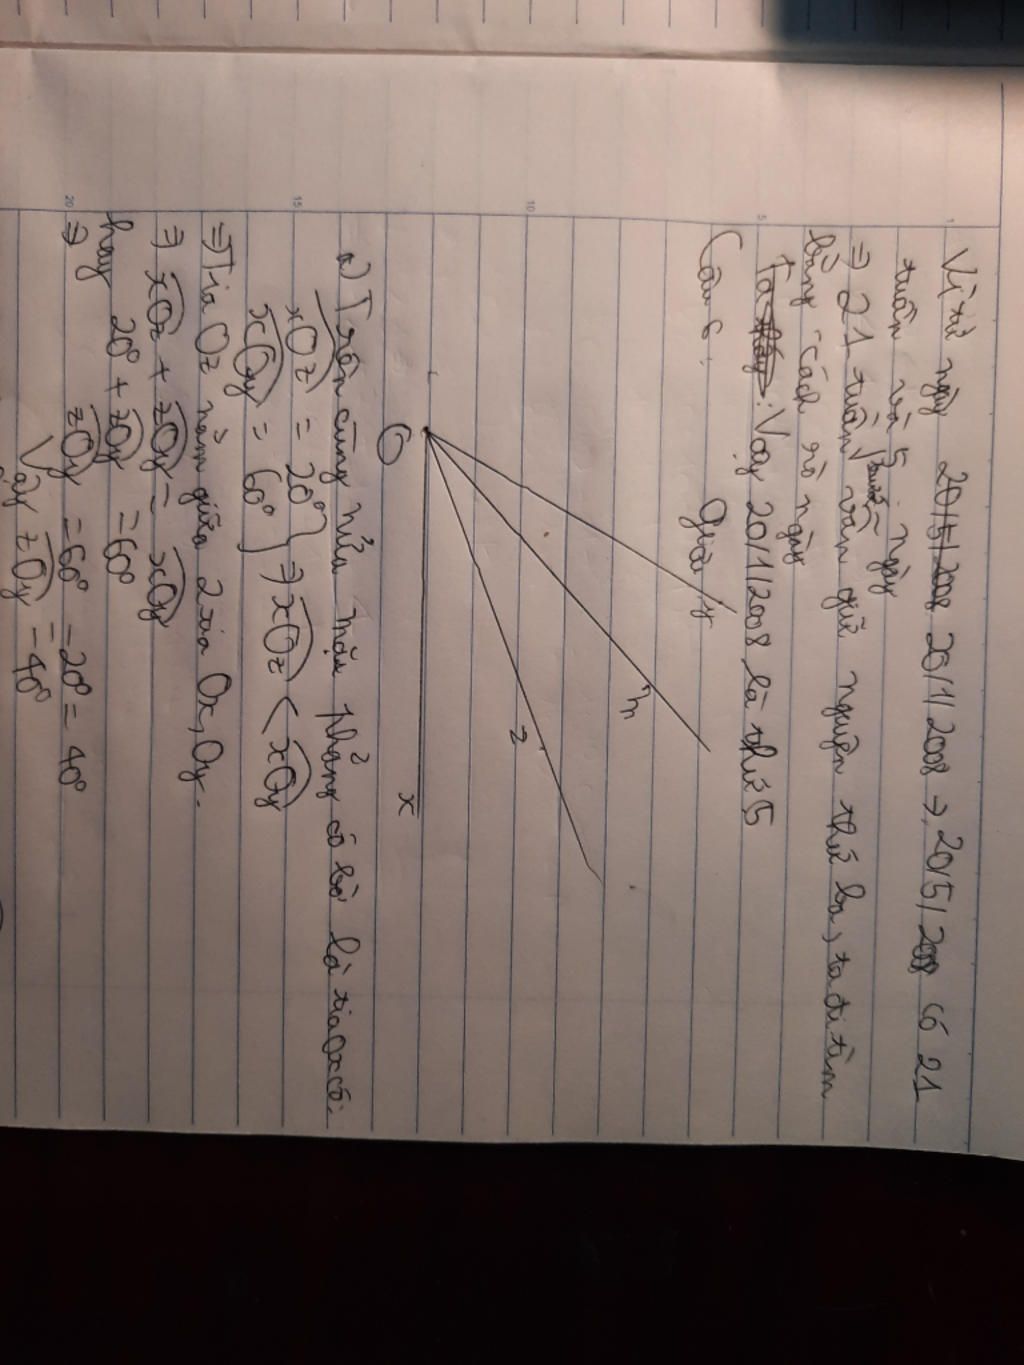 Vì từ ngày 20/5/2008 20/1/2008 → 20/5/2008 có 21
tuần và 5 ngày
⇒ 21 tuần vẫn giữ nguyên thứ ba, ta đi tìm
bằng cách rò ngày
Vậy 20/1/2008 là thứ 5
Câu 6:
Giải
y
m
z
O
x
a) Trên cùng nửa mặt phẳng có bờ là tia Ox có:
xOz = 20°
xOy = 60° } ⇒ xOz < xOy
⇒ Tia Oz nằm giữa 2 tia Ox, Oy.
⇒ xOz + zOy = xOy
hay 20° + zOy = 60°
⇒ zOy = 60° - 20° = 40°
Vậy zOy = 40°
1
5
10
15
20